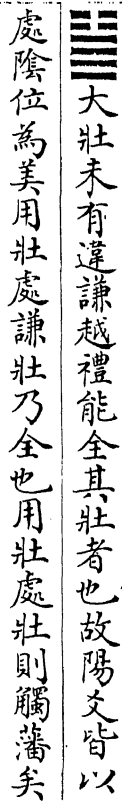 ䷡大壯未有違謙越禮能全其壯者也故陽爻皆以
處陰位為美用壯處謙壯乃全也用壯處壯則觸藩矣